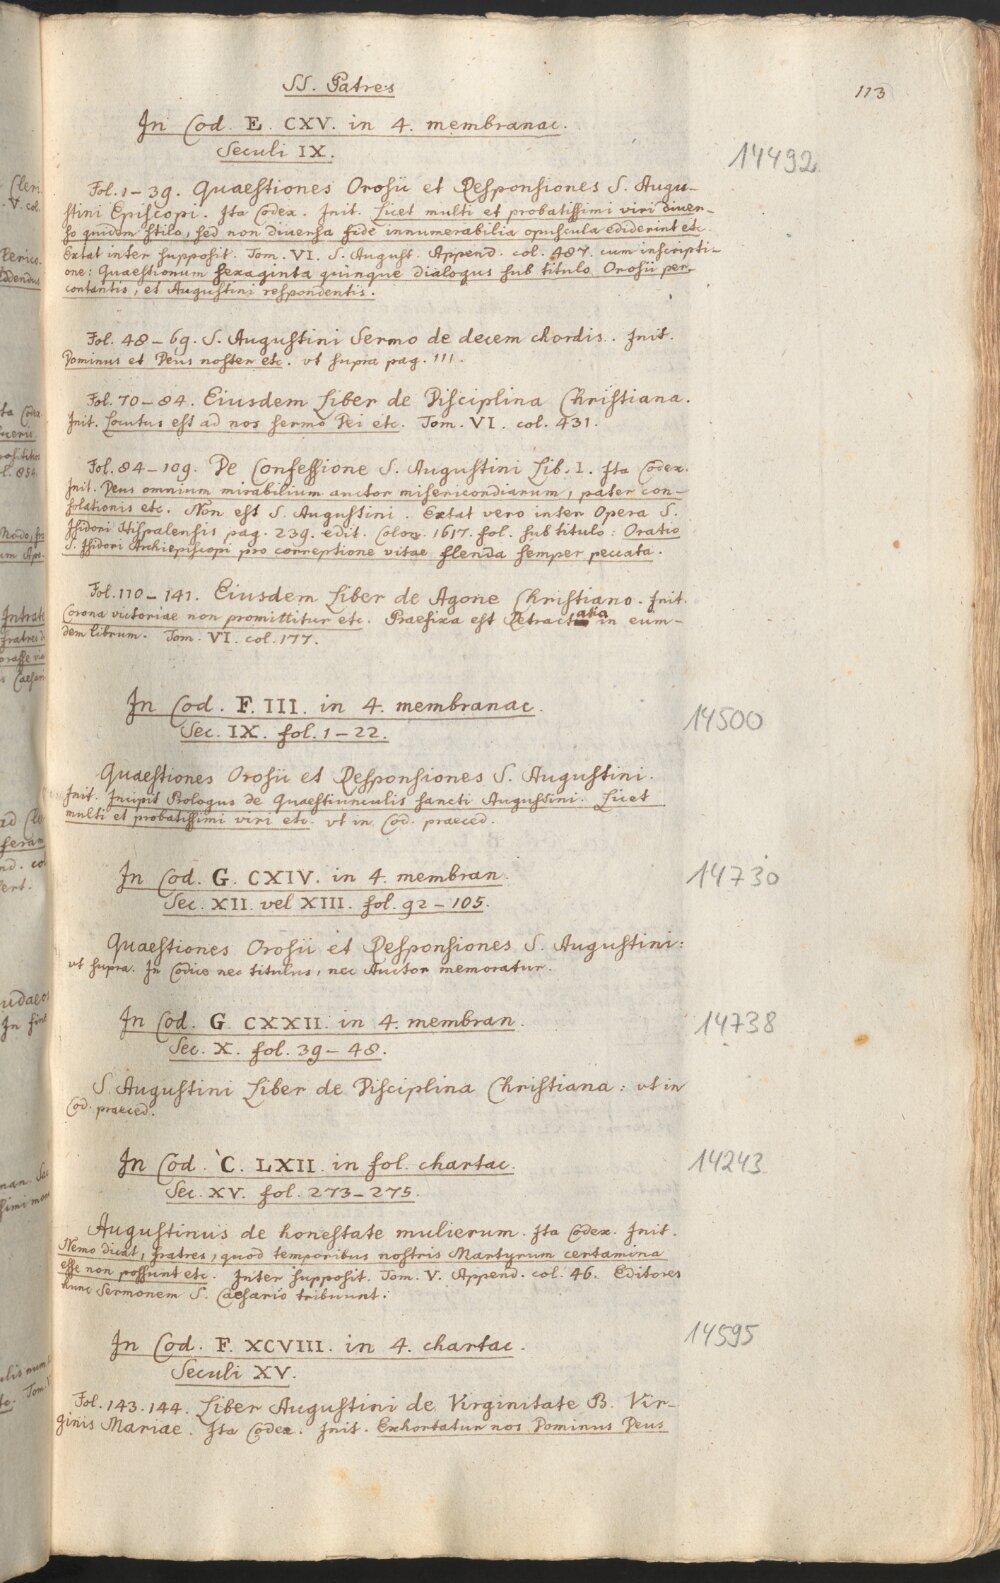 SS. Patres
113
In Cod. E. CXV. in 4. membranac.
Seculi IX.
14492
Fol. 1–39. Quaestiones Orosii et Responsiones S. Augu-
stini Episcopi. Ita Codex. Init. Licet multi et probatissimi viri diver-
so quidem stilo, sed non diversa fide innumerabilia opuscula ediderint etc.
Extat inter supposit. Tom. VI. S. August. Append. col. 487. cum inscripti-
one: Quaestionum sexaginta quinque dialogus sub titulo Orosii per-
contantis, et Augustini respondentis.
Fol. 48–69. S. Augustini Sermo de decem chordis. Init.
Dominus et Deus noster etc. ut supra pag. 111.
Fol. 70–84. Eiusdem Liber de Disciplina Christiana.
Init. Locutus est ad nos sermo Dei etc. Tom. VI. col. 431.
Fol. 84–109. De Confessione S. Augustini Lib. I. Ita Codex.
Init. Deus omnium mirabilium auctor misericordiarum, pater con-
solationis etc. Non est S. Augustini. Extat vero inter Opera S.
Isidori Hispalensis pag. 239. edit. Colon. 1617. fol. sub titulo: Oratio
S. Isidori Archiepiscopi pro correptione vitae flenda semper peccata.
Fol. 110–141. Eiusdem Liber de Agone Christiano. Init.
Corona victoriae non promittitur etc. Praefixa est Retractatio in eum-
dem librum. Tom. VI. col. 177.
In Cod. F. III. in 4. membranac.
14500
Sec. IX. fol. 1–22.
Quaestiones Orosii et Responsiones S. Augustini.
Init. Incipit Prologus de Quaestiunculis sancti Augustini. Licet
multi et probatissimi viri etc. ut in Cod. praeced.
In Cod. G. CXIV. in 4. membran.
14730
Sec. XII. vel XIII. fol. 92–105.
Quaestiones Orosii et Responsiones S. Augustini:
ut supra. In Codice nec titulus, nec Auctor memoratur.
In Cod. G. CXXII. in 4. membran.
14738
Sec. X. fol. 39–48.
S. Augustini Liber de Disciplina Christiana: ut in
Cod. praeced.
In Cod. C. LXII. in fol. chartac.
14243
Sec. XV. fol. 273–275.
Augustinus de honestate mulierum. Ita Codex. Init.
Nemo dicat, fratres, quod temporibus nostris Martyrum certamina
esse non possunt etc. Inter supposit. Tom. V. Append. col. 46. Editores
hunc Sermonem S. Caesario tribuunt.
In Cod. F. XCVIII. in 4. chartac.
14595
Seculi XV.
Fol. 143. 144. Liber Augustini de Virginitate B. Vir-
ginis Mariae. Ita Codex. Init. Exhortatur nos Dominus Deus